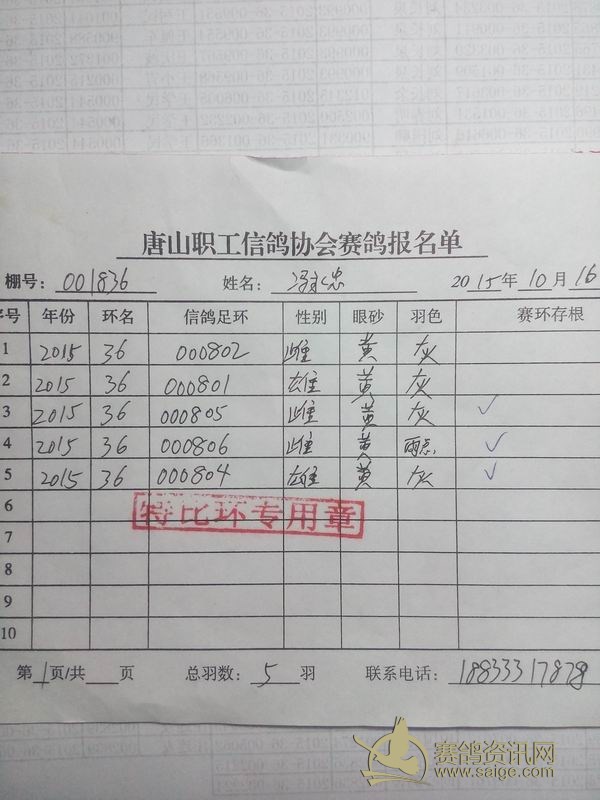 唐山职工信鸽协会赛鸽报名单
棚号: 001836 姓名: 冯永忠 2015年10月16
序号 年份 环名 信鸽足环 性别 眼砂 羽色 赛环存根
1 2015 36 000802 雌 黄 灰
2 2015 36 000801 雄 黄 灰
3 2015 36 000805 雌 黄 灰 ✓
4 2015 36 000806 雌 黄 雨点 ✓
5 2015 36 000804 雄 黄 灰 ✓
6
特比环专用章
7
8
9
10
第1页/共 页 总羽数: 5 羽 联系电话: 18833317878
赛鸽资讯网
www.saige.com